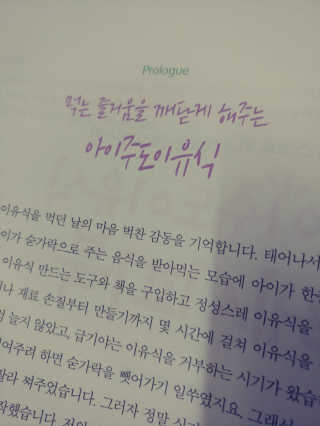 Prologue
먹는 즐거움을 깨닫게 해주는
아이주도이유식
이유식을 먹던 날의 마음 벅찬 감동을 기억합니다. 태어나서
이가 숟가락으로 주는 음식을 받아먹는 모습에 아이가 한
이유식 만드는 도구와 책을 구입하고 정성스레 이유식을
나 재료 손질부터 만들기까지 몇 시간에 걸쳐 이유식을
늘지 않았고, 급기야는 이유식을 거부하는 시기가 왔습
여주려 하면 숟가락을 뺏어가기 일쑤였지요. 그래서
잘라 쪄주었습니다. 그러자 정말
작했습니다.